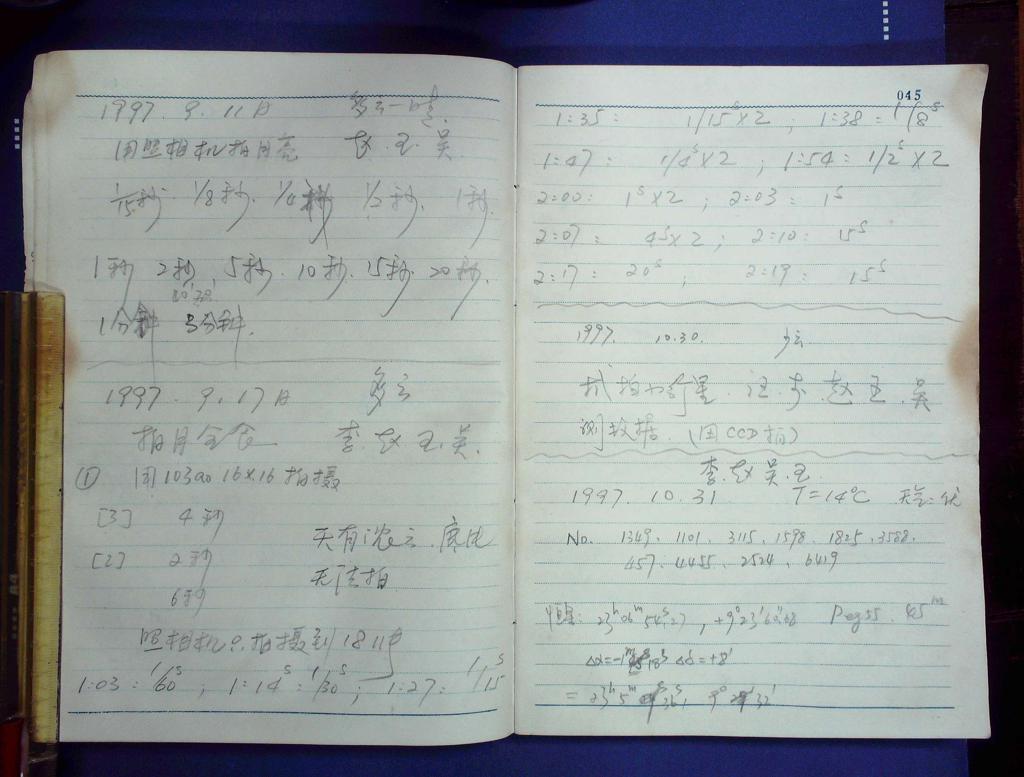 1997. 9. 11日 多云—晴
用照相机拍月亮 赵. 王. 吴
1/15秒 1/8秒. 1/4秒 1/2秒. 1秒.
1秒 2秒. 5秒. 10秒. 15秒. 20秒.
1分钟 3分钟.
1997. 9. 17日 多云
拍月全食 李. 赵. 王. 吴.
① 用103a0 16×16 拍摄
[3] 4秒
天有浓云.
[2] 2秒
无法拍
6秒
照相机只拍摄到18
1:03: 1/60s ; 1:14s: 1/30s ; 1:27: 1/15s
045
1:35: 1/15s×2 ; 1:38: 1/8s
1:47: 1/4s×2 ; 1:54: 1/2s×2
2:00: 1s×2 ; 2:03: 1s
2:07: 4s×2 ; 2:10: 15s
2:17: 20s ; 2:19: 15s
1997. 10.30. 少云
试拍小行星. 汪. 李. 赵. 王. 吴
测数据. (用CCD拍)
李. 赵. 吴. 王
1997. 10. 31 T=14°C 天气: 优
No. 1349. 1101. 3115. 1598. 1825. 3588.
457. 4455. 2524. 6419
23h06m54s27, +9°23' Peg55. 45m
Δα=-1m18s Δδ=+8'
= 23h5m36s, 9°32'
A4